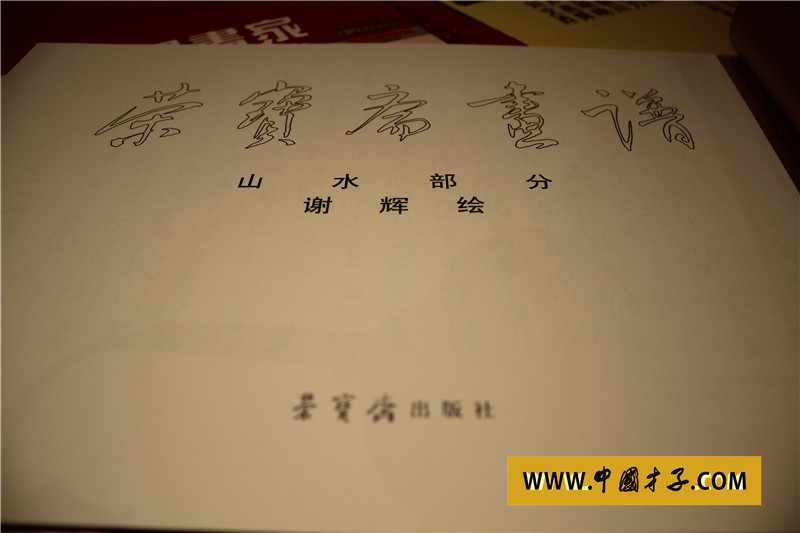 荣寶斋畫譜
山水部分
谢辉绘
荣寶斋出版社
WWW.中國才子.COM